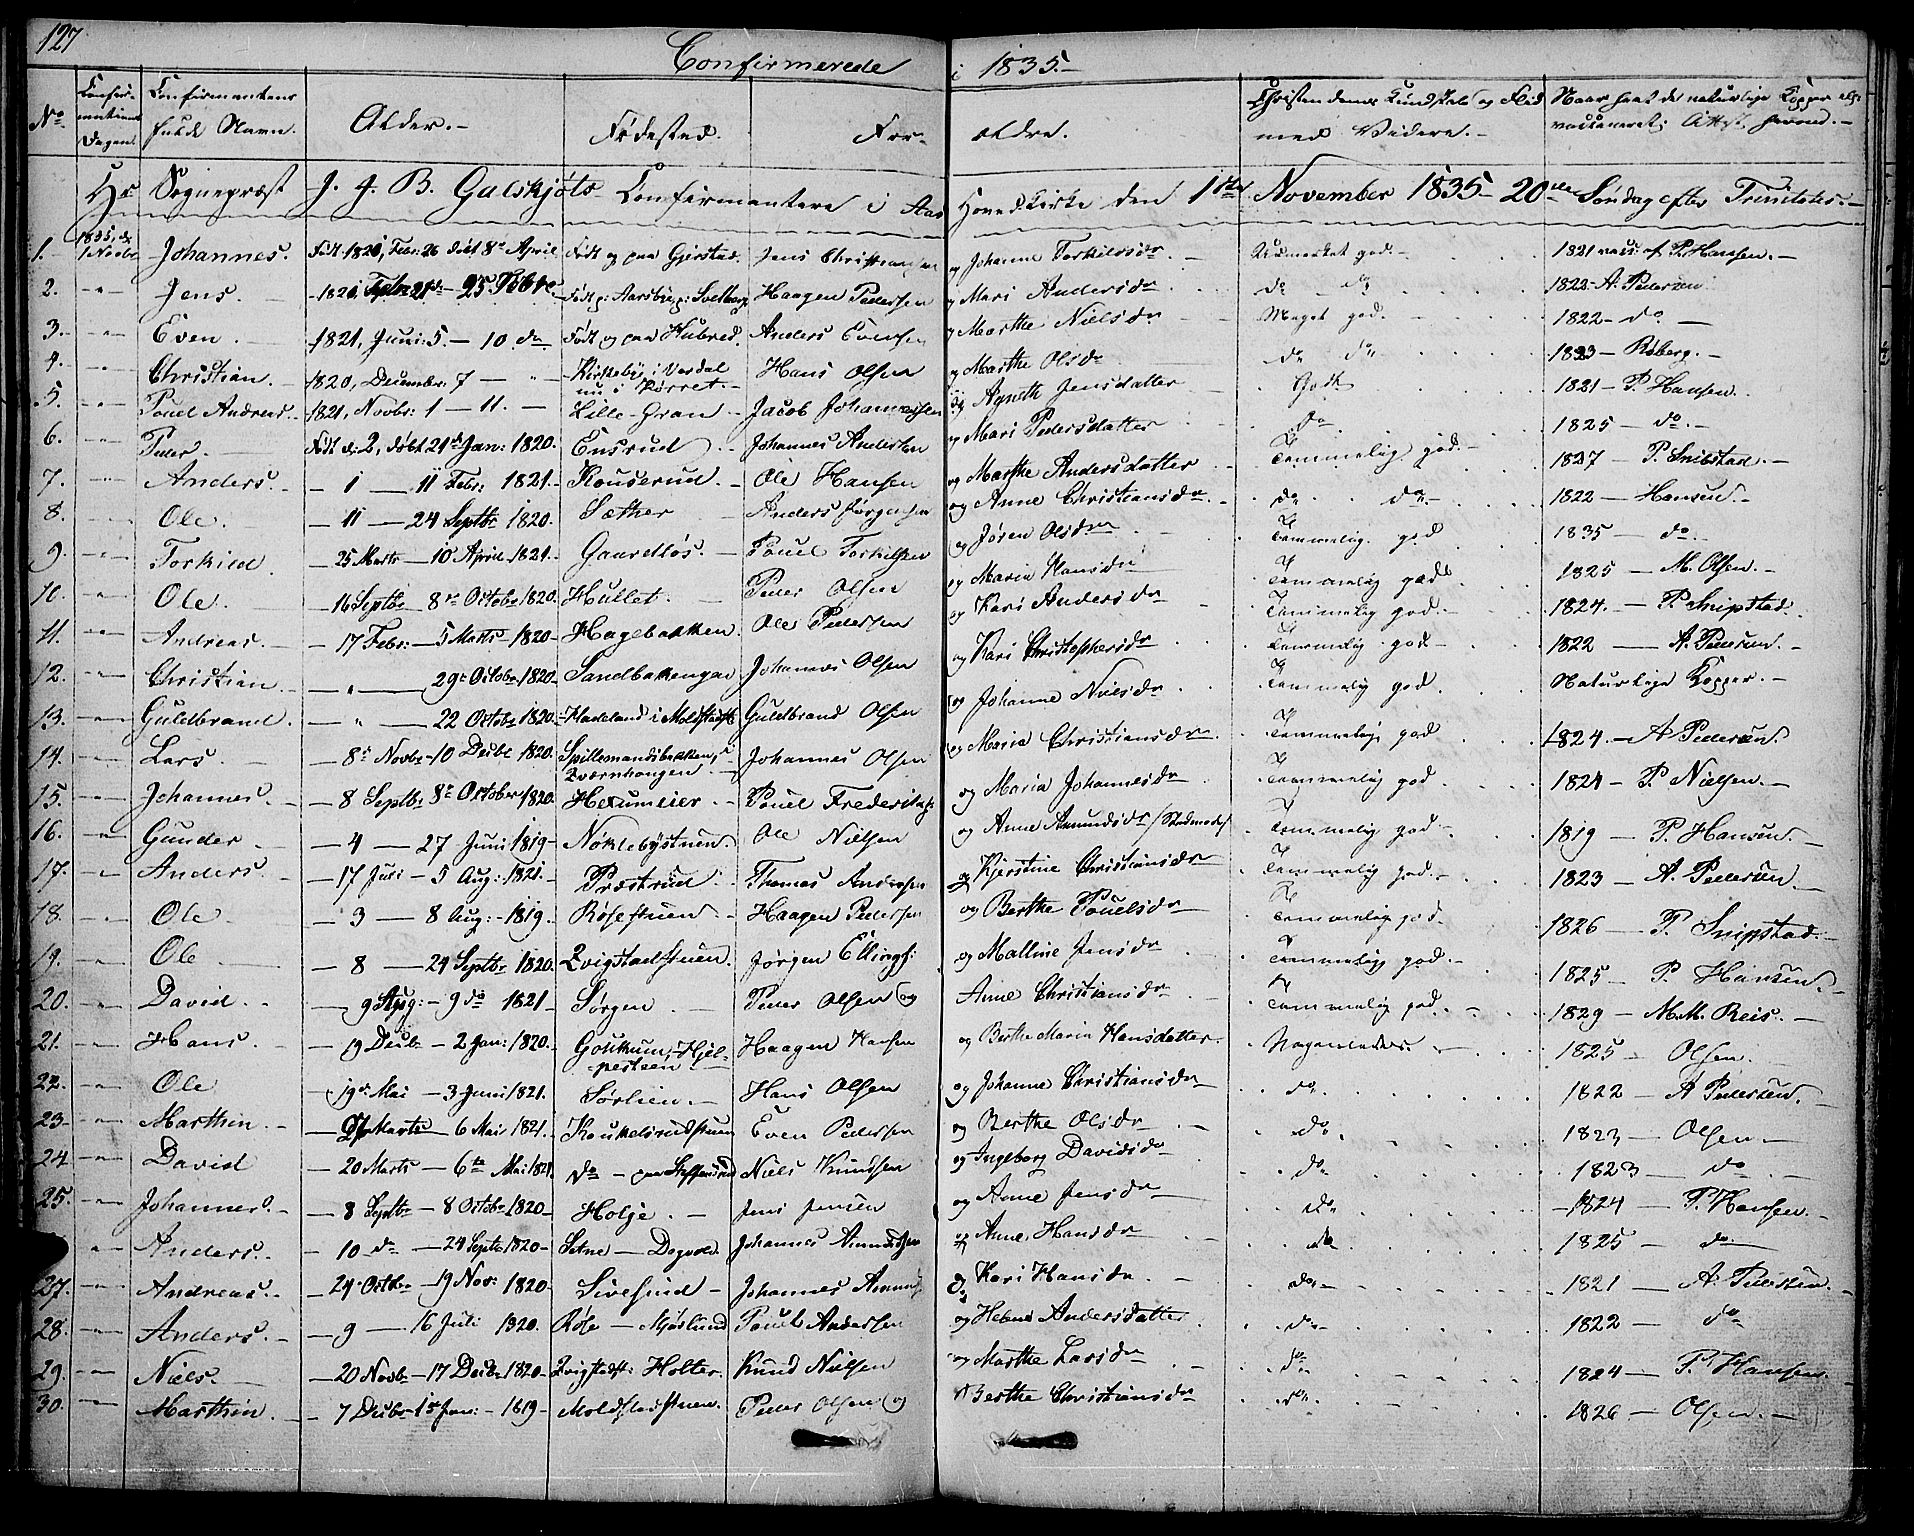 127
Confirmerede i 1835.-
No.
Confirmations Dagen.
Confirmantens fulde Navn.
Alder.-
Fødested.
For-ældre.
Christendoms Kundskab og Flid med Videre.-
Naar havt de naturlige Kopper eller vaccineret; Attest herom.-
Hr Sognepræst J. J. B. Galskjøts Confirmantere i Aas Hovedkirke den 1ste November 1835 20de Søndag efter Trinitatis.-
1. 1835, d. 1 Novbr Johannes. Født 1820, Febr: 26 døbt 8de April Født og paa Gjerstad. Jens Christiansen og Johanne Torkilsdr - god. - 1821 vacc: af P. Hansen.-
2. -"- Jens. - 25 Født p: Haagen Pedersen og Mari Andersdr do do 1822 - A. Pedersen
3. -"- Even. 1821, Juni 5. - 10. do Født og paa Hubred. Anders Evensen og Marthe Nielsdr Meget god. 1822 - do -
4. -"- Christian. 1820, December 7 - " - Kirkeby i Vardal nu i Hans Olsen og Marthe Olsdr do do 1823 - Røberg.-
5. -"- Pouel Andreas. 1821, Novbr: 1 - 11. - Lille-Gran - Jacob Johannessen og Agneth Jensdatter Godt 1821 - P. Hansen.
6. -"- Peder. Født d: 2, døbt 21de Jan: 1820. Ensrud. Johannes Andersen og Mari Pedersdatter do 1825 - do.-
7. -"- Anders. - 1 - 11 Febr: 1821. - Kouserud. - Ole Hansen og Marthe Andersdatter Temmelig god - 1827 - P. Snibstad.-
8. -"- Ole. - 11 - 24 Septbr 1820. Sæther Anders Jørgensen og Anne Christiansdr. do. do.- 1822 - Hansen.-
9. -"- Torkild. - 25 Marts - 10 April 1821. Gaardløs. - Pouel Torkilsen og Jøren Olsdr Temmelig god 1835 - do.
10. -"- Ole. - 16 Septbr 8de Octobr 1820. Hullet. - Peder Olsen og Maria Hansdr Temmelig godt 1825 - M. Olsen.-
11. -"- Andreas. - 17 Febr: - 5 Marts - 1820 - Hagebakken. Ole Pedersen og Kari Andersdr Temmelig god - 1824. - P. Snipstad.
12. -"- Christian. - " - 29de Octobr 1820. Sandbakkengen Johannes Olsen og Kari Christophersdr Temmelig god - 1822 - A. Pedersen.-
13. -"- Guldbrand. - " - 22 Octobr 1820. Hadeland i Guldbrand Olsen og Johanne Nielsdr Temmelig god. Naturlige Kopper.-
14. -"- Lars. - 8de Novbr - 10 Decbr 1820. Spillemandsbakken, Qværnhougen. - Johannes Olsen og Maria Christiansdr. Temmelig god 1824. - A. Pedersen.
15. -"- Johannes. - 8 Septbr 8de October 1820. Hexumeier. - Pouel Frederiks: og Maria Johannesdr Temmelig god 1824 - P. Nielsen.-
16. -"- Gunder - 4 - 27 Juni 1819 - Nøklebystuen. Ole Nielsen og Anne Amundsdr Temmelig god - 1819 - P. Hansen.-
17. -"- Anders. - 17 Juli - 5 Aug: 1821. - Præstrud. - Thomas Andersen og Kjerstine Christiansdr Temmelig god. - 1823 - A. Pedersen.
18. -"- Ole. - 3 - 8 Aug: - 1819. - Røsestuen. - Haagen Pedersen og Berthe Pouelsdr - Temmelig god. 1826 - P. Snipstad.-
19. -"- Ole - 8 - 24 Septbr 1820. Qvigstadstuen. Jørgen Ellings: og Malline Jensdr Temmelig god. - 1825 - P. Hansen.-
20. -"- David. - - 9 Aug: - 9 do 1821 - Sørgen. - Peder Olsen og Anne Christiansdr Temmelig god. - 1829 - M. M. Reis.-
21. -"- Hans. - 19 Decbr - 2 Jan: 1820. - Haagen Hansen og Berthe Maria Hansdatter. 1825 - Olsen.
22. -"- Ole - 19de Mai - 3 Juni 1821. Sørlien. - Hans Olsen og Johanne Christiansdr do. 1822 - A. Pedersen.-
23. -"- Marthin. - Marts - 6 Mai 1821. - Even Pedersen og Berthe Olsdr do. 1823 - Olsen.-
24 -"- David - 20 Marts - 6te Mai 1821 do - paa Niels Knudsen og Ingeborg Davidsdr do 1823 - do -
25. -"- Johannes. - - 8 Septbr - 8 Octobr 1820 - Holje. - Jens Jensen og Anne Jensdr do 1824 P. Hansen.-
-"- Anders. - 10 do - 24 Septbr 1820 - Setne - Johannes Amundsen og Anne Hansdr do 1825 - do.-
27. -"- Andreas. - - 29 Octbr - 19 Nov: 1820. Sivesind - Johannes Amunds: og Kari Hansdr. - do - 1821 - A: Pedersen.
28. -"- Anders. - - 9 - 16 Juli 1820. Røse - Mjøslund Pouel Andersen og Helene Andersdatter do - 1822 - do
29. -"- Niels. - - 20 Novbr - 17 Decbr 1820 - Qvigstadst: Holter. Knud Nielsen og Marthe Larsdr do 1824 - P. Hansen.
30. -"- Marthin. - - 7 Decbr - 1ste Jan: - 1819 - Moldstadstuen. Peder Olsen og Berthe Christiansdr do. 1826 - Olsen.-